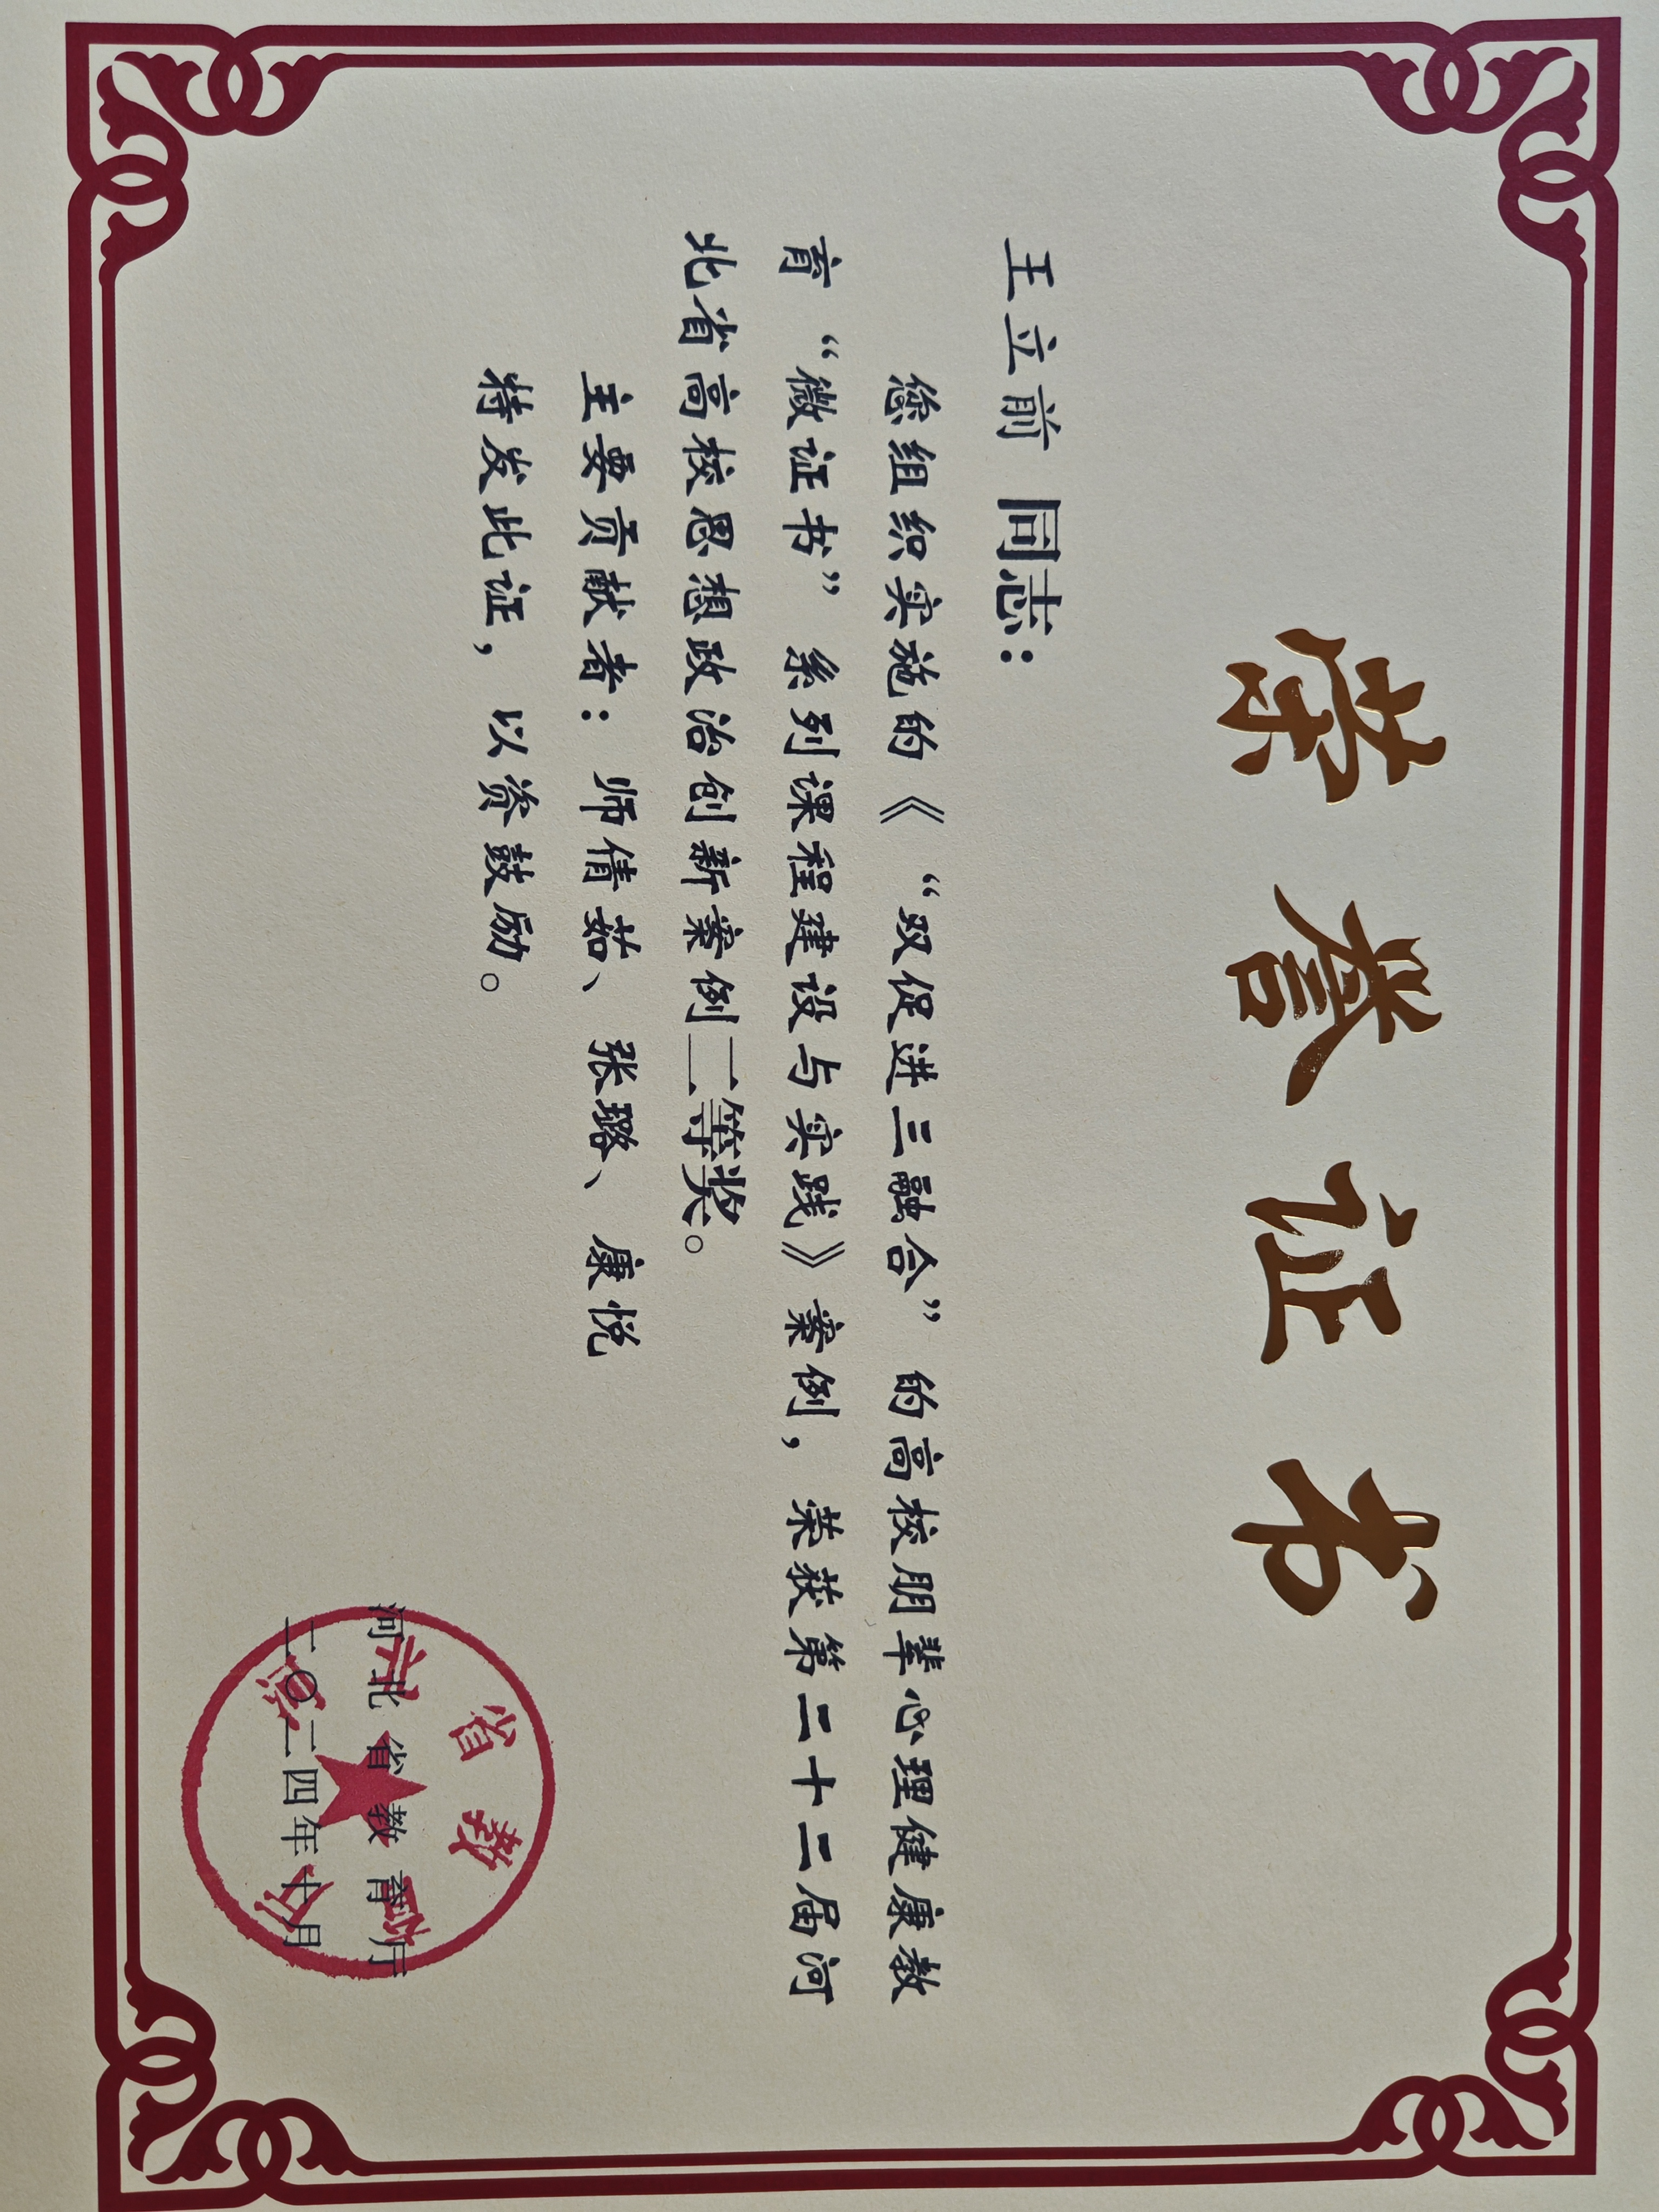 荣誉证书
王立前 同志：
您组织实施的《“双促进三融合”的高校朋辈心理健康教
育“微证书”系列课程建设与实践》案例，荣获第二十二届河
北省高校思想政治创新案例二等奖。
主要贡献者：师倩茹、张璐、康悦
特发此证，以资鼓励。
河北省教育厅
二〇二四年十月